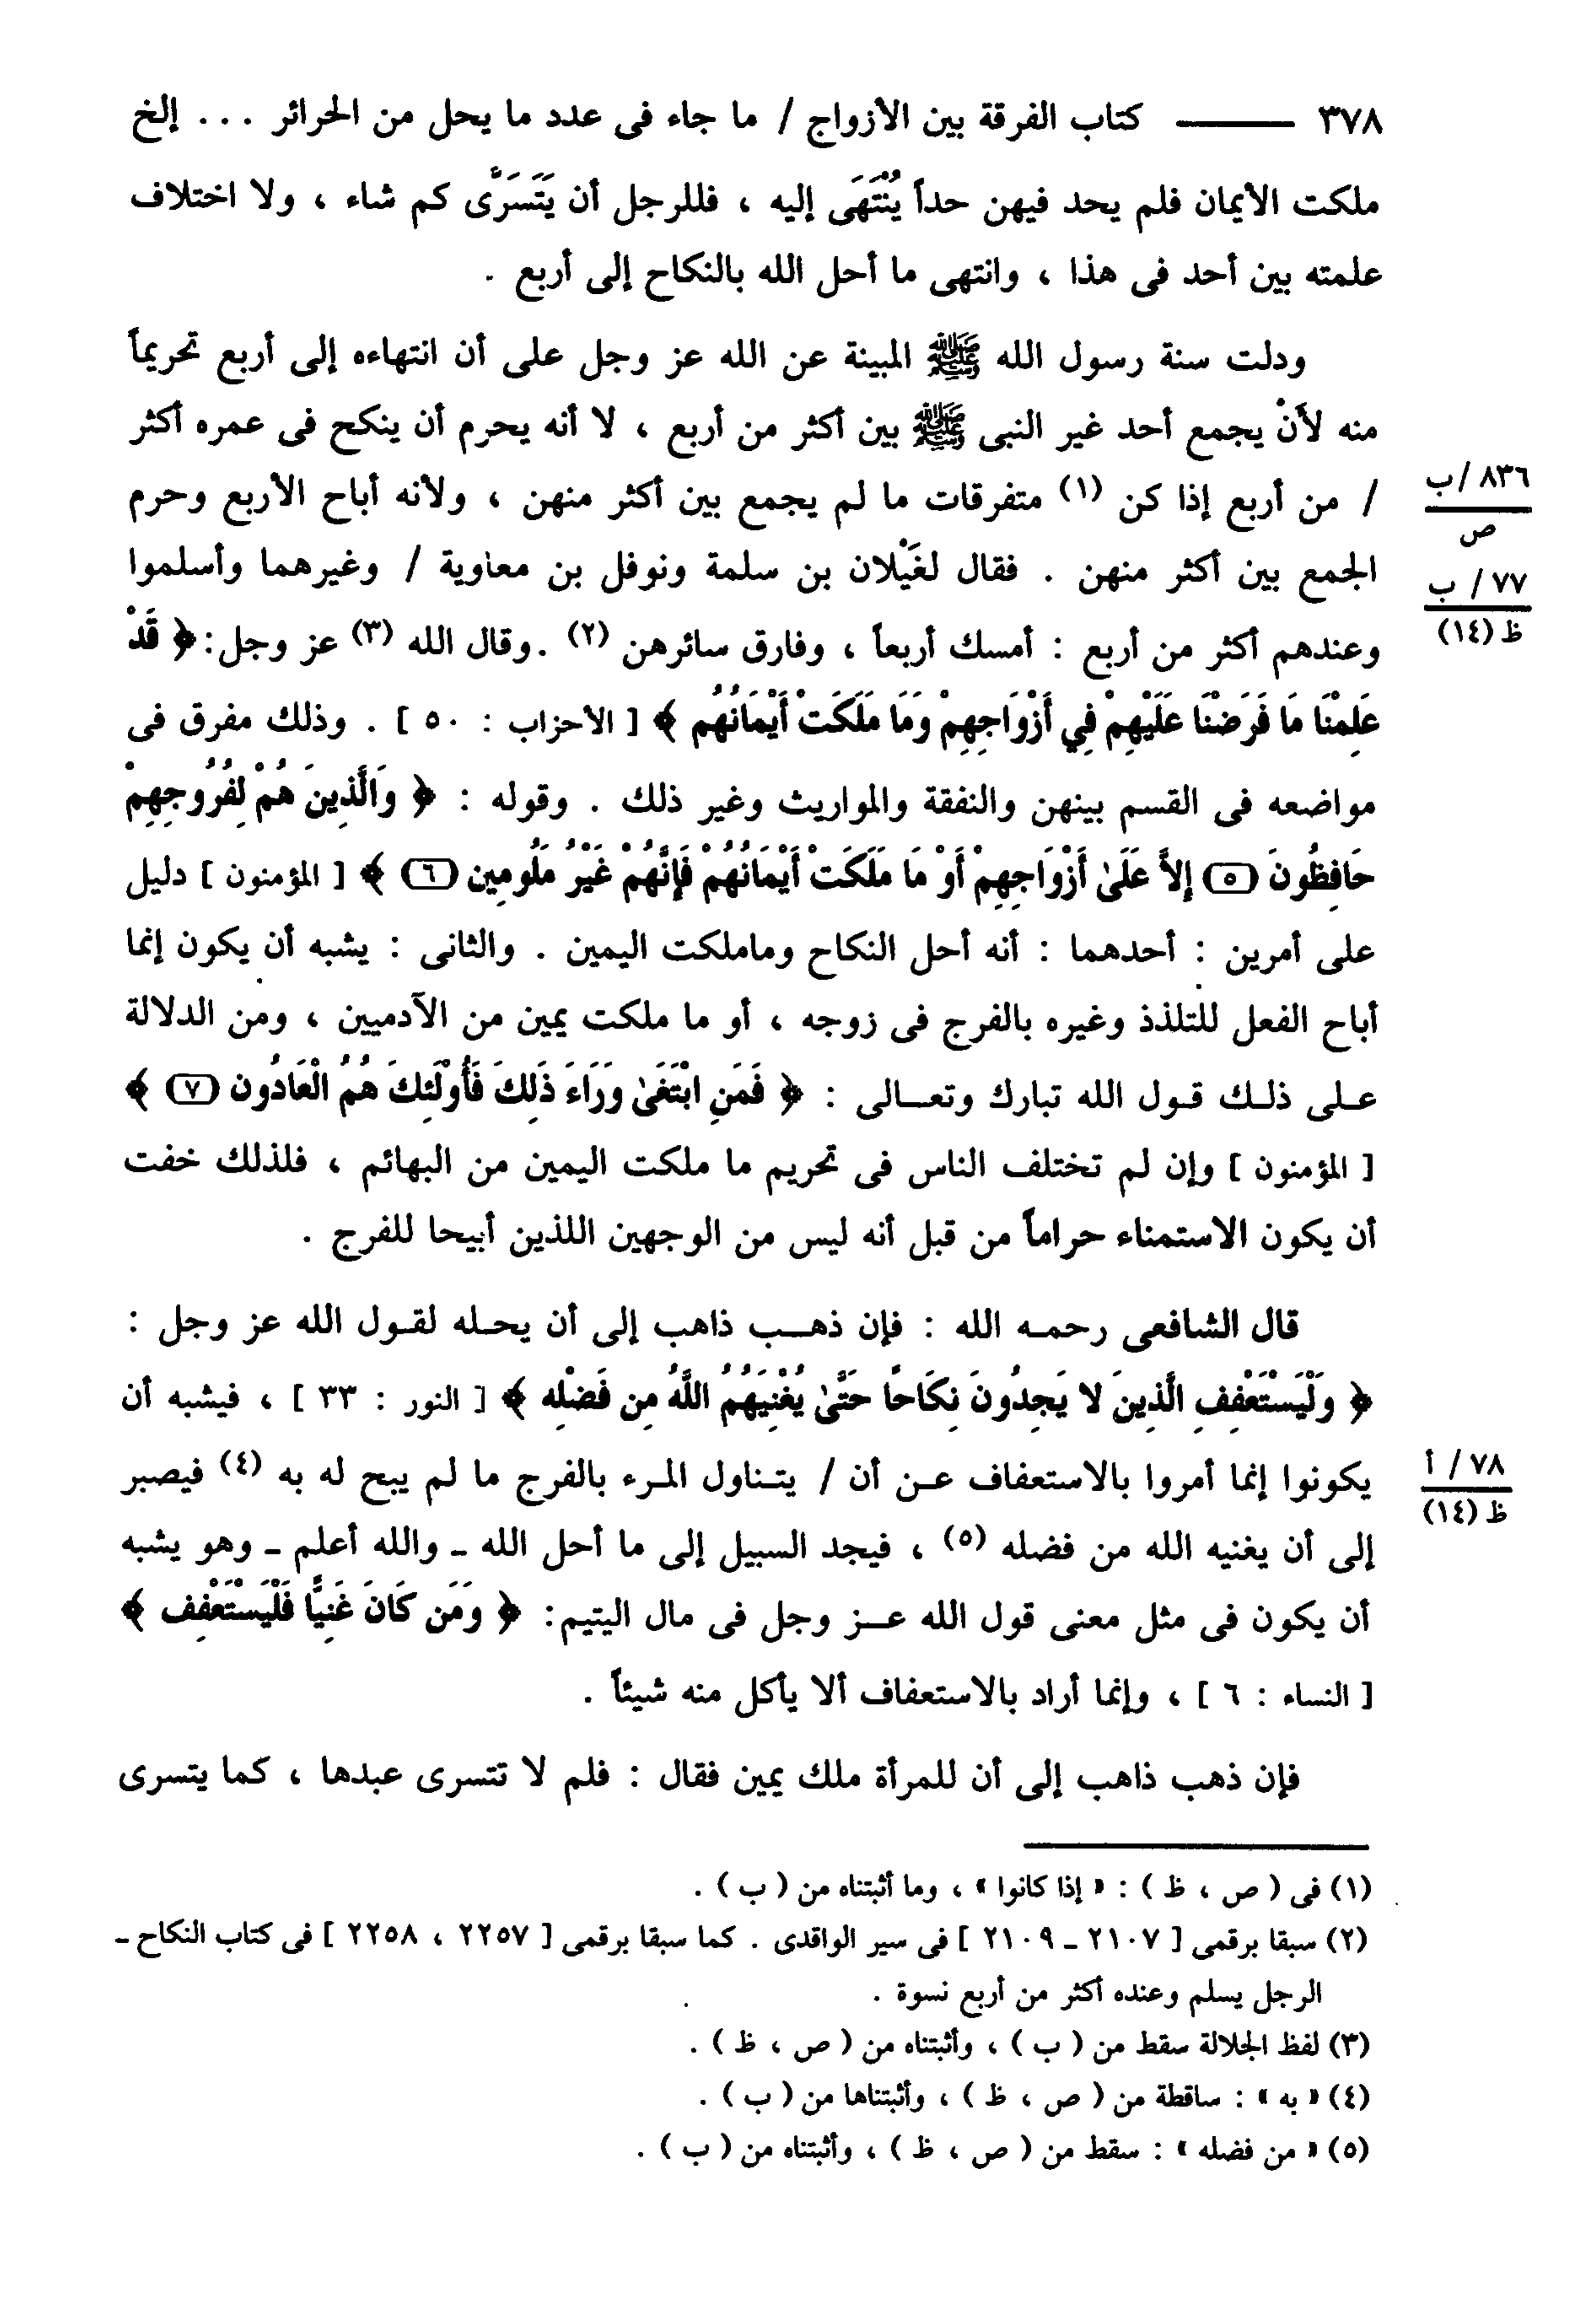 ٣٧٨ ــــــ كتاب الفرقة بين الأزواج / ما جاء فى عدد ما يحل من الحرائر . . . إلخ
ملكت الأيمان فلم يحد فيهن حداً يُنْتَهَى إليه ، فللرجل أن يَتَسَرَّى كم شاء ، ولا اختلاف
علمته بين أحد فى هذا ، وانتهى ما أحل الله بالنكاح إلى أربع .
ودلت سنة رسول الله ﷺ المبينة عن الله عز وجل على أن انتهاءه إلى أربع تحريماً
منه لأَنْ يجمع أحد غير النبى ﷺ بين أكثر من أربع ، لا أنه يحرم أن ينكح فى عمره أكثر
/ من أربع إذا كن (١) متفرقات ما لم يجمع بين أكثر منهن ، ولأنه أباح الأربع وحرم
٨٣٦ /ب
ص
الجمع بين أكثر منهن . فقال لغَيْلان بن سلمة ونوفل بن معاوية / وغيرهما وأسلموا
٧٧ / ب
ظ (١٤)
وعندهم أكثر من أربع : أمسك أربعاً ، وفارق سائرهن (٢) .وقال الله (٣) عز وجل: ﴿ قَدْ
عَلِمْنَا مَا فَرَضْنَا عَلَيْهِمْ فِي أَزْوَاجِهِمْ وَمَا مَلَكَتْ أَيْمَانُهُم ﴾ [ الأحزاب : ٥٠ ] . وذلك مفرق فى
مواضعه فى القسم بينهن والنفقة والمواريث وغير ذلك . وقوله : ﴿ وَالَّذِينَ هُمْ لِفُرُوجِهِمْ
حَافِظُونَ (٥) إِلاَّ عَلَىٰ أَزْوَاجِهِمْ أَوْ مَا مَلَكَتْ أَيْمَانُهُمْ فَإِنَّهُمْ غَيْرُ مَلُومِين (٦) ﴾ [ المؤمنون ] دليل
على أمرين : أحدهما : أنه أحل النكاح وماملكت اليمين . والثانى : يشبه أن يكون إنما
أباح الفعل للتلذذ وغيره بالفرج فى زوجه ، أو ما ملكت يمين من الآدميين ، ومن الدلالة
على ذلك قول الله تبارك وتعالى : ﴿ فَمَنِ ابْتَغَىٰ وَرَاءَ ذَلِكَ فَأُوْلَئِكَ هُمُ الْعَادُون (٧) ﴾
[ المؤمنون ] وإن لم تختلف الناس فى تحريم ما ملكت اليمين من البهائم ، فلذلك خفت
أن يكون الاستمناء حراماً من قبل أنه ليس من الوجهين اللذين أبيحا للفرج .
قال الشافعى رحمه الله : فإن ذهب ذاهب إلى أن يحله لقول الله عز وجل :
﴿ وَلْيَسْتَعْفِفِ الَّذِينَ لا يَجِدُونَ نِكَاحًا حَتَّىٰ يُغْنِيَهُمُ اللَّهُ مِن فَضْلِه ﴾ [ النور : ٣٣ ] ، فيشبه أن
يكونوا إنما أمروا بالاستعفاف عن أن / يتناول المرء بالفرج ما لم يبح له به (٤) فيصبر
٧٨ / أ
ظ (١٤)
إلى أن يغنيه الله من فضله (٥) ، فيجد السبيل إلى ما أحل الله ـ والله أعلم ـ وهو يشبه
أن يكون فى مثل معنى قول الله عز وجل فى مال اليتيم: ﴿ وَمَن كَانَ غَنِيًّا فَلْيَسْتَعْفِف ﴾
[ النساء : ٦ ] ، وإنما أراد بالاستعفاف ألا يأكل منه شيئاً .
فإن ذهب ذاهب إلى أن للمرأة ملك يمين فقال : فلم لا تتسرى عبدها ، كما يتسرى
(١) فى ( ص ، ظ ) : « إذا كانوا » ، وما أثبتناه من ( ب ) .
(٢) سبقا برقمى [ ٢١٠٧ ـ ٢١٠٩ ] فى سير الواقدى . كما سبقا برقمى [ ٢٢٥٧ ، ٢٢٥٨ ] فى كتاب النكاح ـ
الرجل يسلم وعنده أكثر من أربع نسوة .
(٣) لفظ الجلالة سقط من ( ب ) ، وأثبتناه من ( ص ، ظ ) .
(٤) « به » : ساقطة من ( ص ، ظ ) ، وأثبتناها من ( ب ) .
(٥) « من فضله » : سقط من ( ص ، ظ ) ، وأثبتناه من ( ب ) .